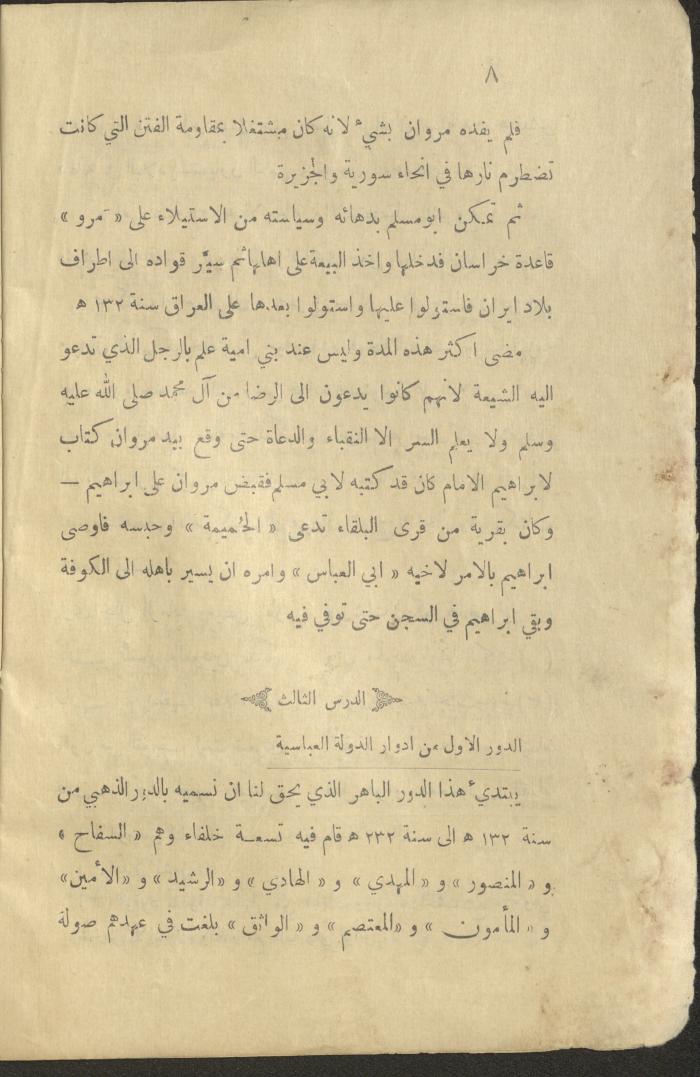 ٨
فلم يفده مروان بشيء لانه كان مشتغلا بمقاومة الفتن التي كانت
تضطرم نارها في انحاء سورية والجزيرة
ثم تمكن ابومسلم بدهائه وسياسته من الاستيلاء على « مرو »
قاعدة خراسان فدخلها واخذ البيعة على اهلها ثم سيَّر قواده الى اطراف
بلاد ايران فاستولوا عليها واستولوا بعدها على العراق سنة ١٣٢ ه
مضى اكثر هذه المدة وليس عند بني امية علم بالرجل الذي تدعو
اليه الشيعة لانهم كانوا يدعون الى الرضا من آل محمد صلى الله عليه
وسلم ولا يعلم السر الا النقباء والدعاة حتى وقع بيد مروان كتاب
لابراهيم الامام كان قد كتبه لابي مسلم فقبض مروان على ابراهيم —
وكان بقرية من قرى البلقاء تدعى « الحُميمة » وحبسه فاوصى
ابراهيم بالامر لاخيه « ابي العباس » وامره ان يسير باهله الى الكوفة
وبقي ابراهيم في السجن حتى توفي فيه
الدرس الثالث
الدور الاول من ادوار الدولة العباسية
يبتدىء هذا الدور الباهر الذي يحق لنا ان نسميه بالدور الذهبي من
سنة ١٣٢ ه الى سنة ٢٣٢ ه قام فيه تسعة خلفاء وهم « السفاح »
و « المنصور » و « المهدي » و « الهادي » و « الرشيد » و «الأمين»
و « المأمون » و «المعتصم » و « الواثق » بلغت في عهدهم صولة